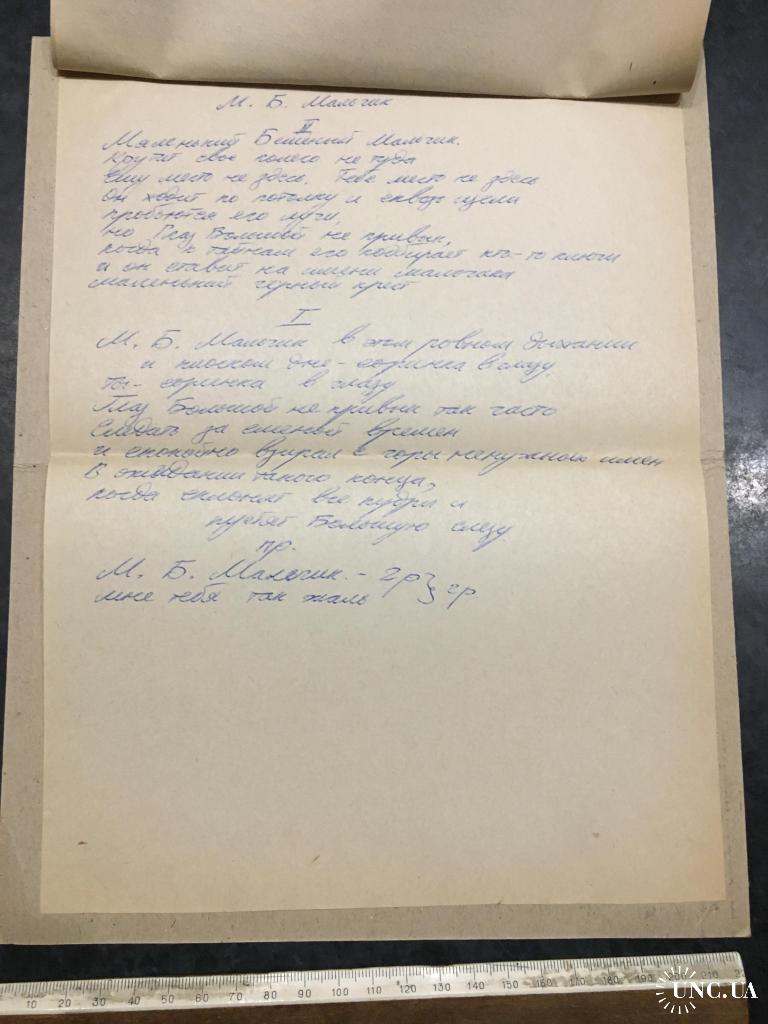 М. Б. Мальчик
II
Маленький Бешеный Мальчик.
Крутит свое колесо не туда
Ему место не здесь. Тебе место не здесь
Он ходит по потолку и сквозь щели
пробьются его лучи,
но Глаз Большой не привык,
когда к тайнам его подбирает кто-то ключи
и он ставит на имени мальчика
маленький черный крест
I
М. Б. Мальчик в этом ровном дыхании
и плоском дне - соринка в глазу.
Ты - соринка в глазу
Глаз Большой не привык так часто
Следить за сменой времен
и спокойно взирал с горы ненужных имен
В ожидании такого конца,
когда склонят все кудри и
пустят Большую слезу.
пр.
М. Б. Мальчик. - 2р } 2р.
мне тебя так жаль
10 20 30 40 50 60 70 80 90 100 110 120 130 140 150 160 170 180 190 200 210
UNC.UA